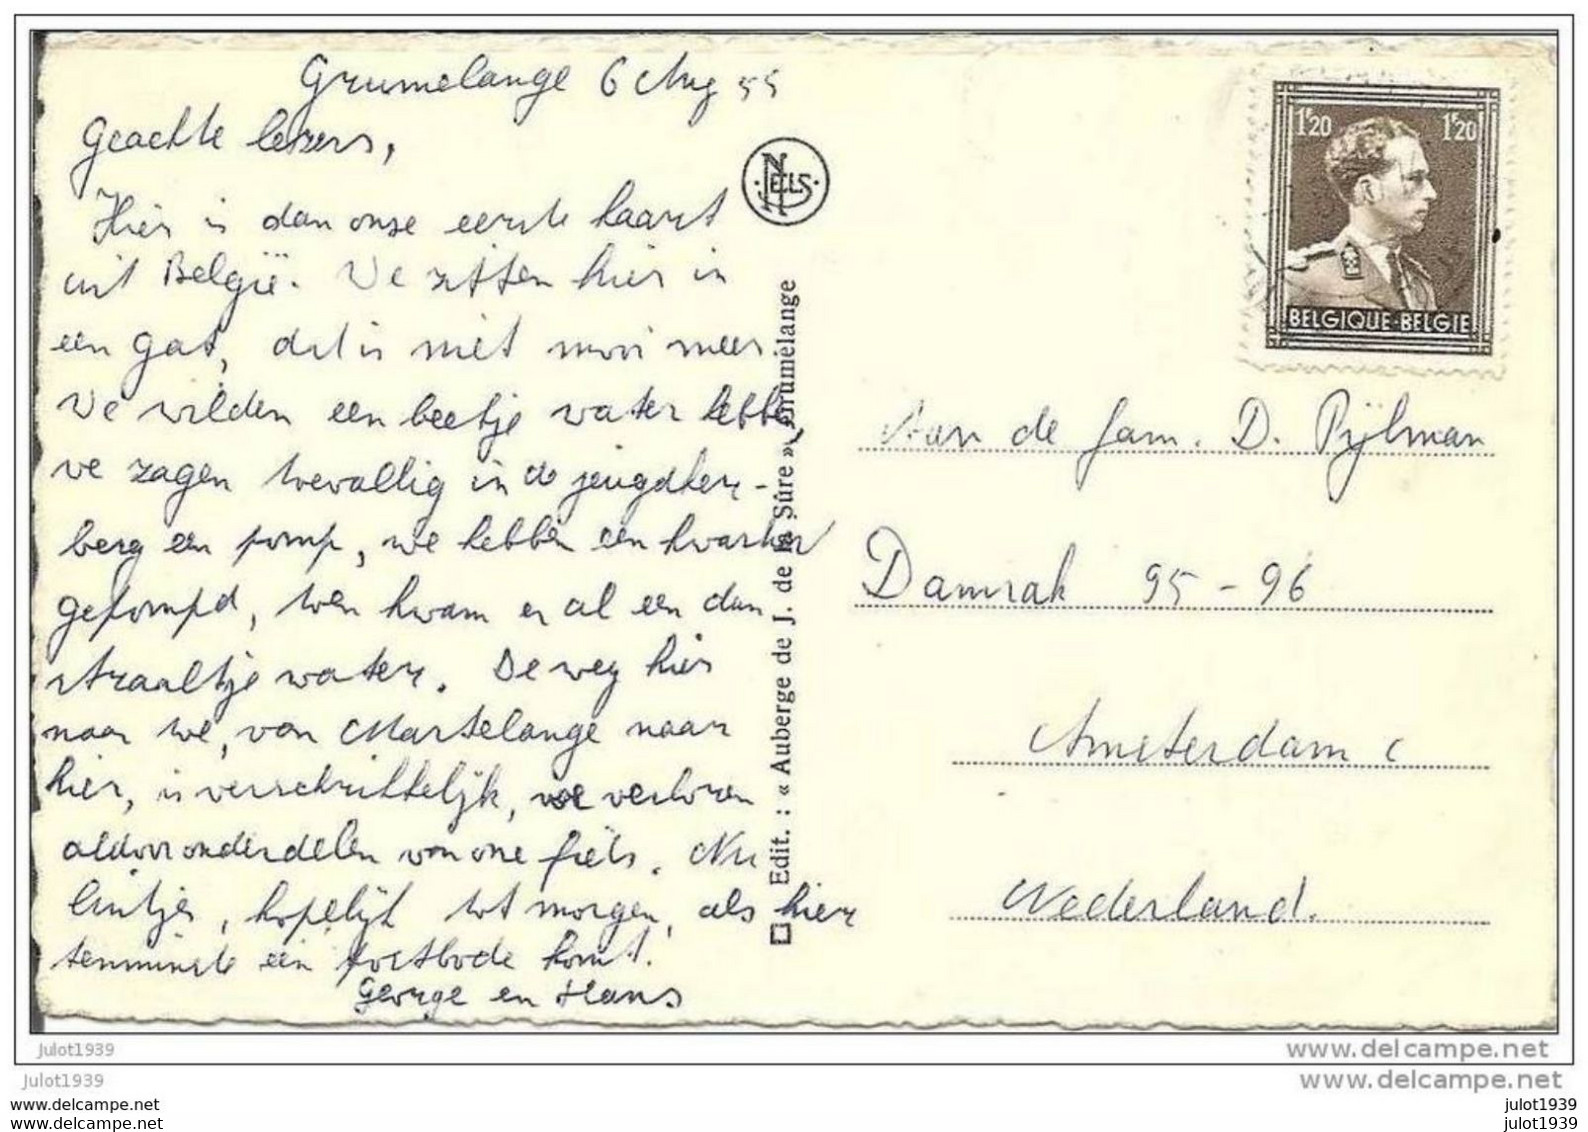 Grumelange 6 Aug 55
Geachte lezers,
Hier is dan onze eerste kaart
uit België. We zitten hier in
een gat, dat is niet mooi meer.
We wilden een beetje water hebben
we zagen toevallig in de jeugdher-
berg een pomp, we hebben een kwartier
gepompd, toen kwam er al een dun
straaltje water. De weg hier
naar toe, van Martelange naar
hier, is verschrikkelijk, we verloren
aldoor onderdelen van one fiets. Nu
luitjes, hopelijk tot morgen, als hier
tenminste een postbode komt.
George en Hans
NELS
Edit. : « Auberge de J. de la Sûre », Grumelange
1F20 1F20
BELGIQUE-BELGIE
Aan de fam. D. Pijlman
Damrak 95 - 96
Amsterdam C
Nederland.
julot1939
www.delcampe.net
julot1939
www.delcampe.net
www.delcampe.net
julot1939
www.delcampe.net
julot1939